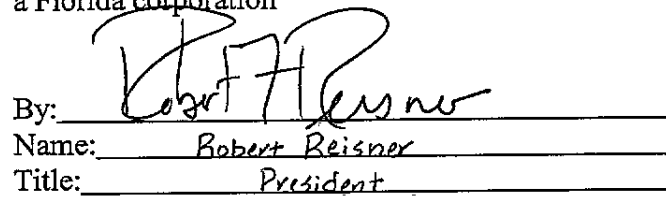 a Florida corporation
By: Robert F Reisner
Name: Robert Reisner
Title: President